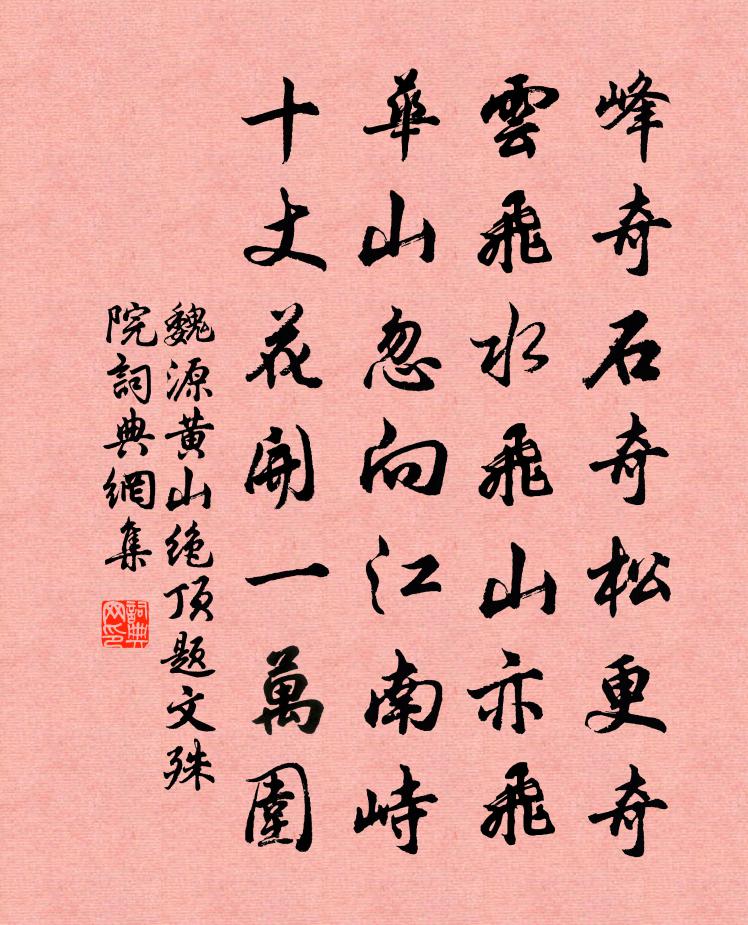 峰奇石奇松更奇
雲飛水飛山亦飛
華山忽向江南峙
十丈花開一萬圍
魏源黄山绝顶题文殊
院詞典網集
詞典
网印